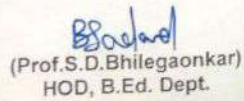 (Prof.S.D.Bhilegaonkar)
HOD, B.Ed. Dept.